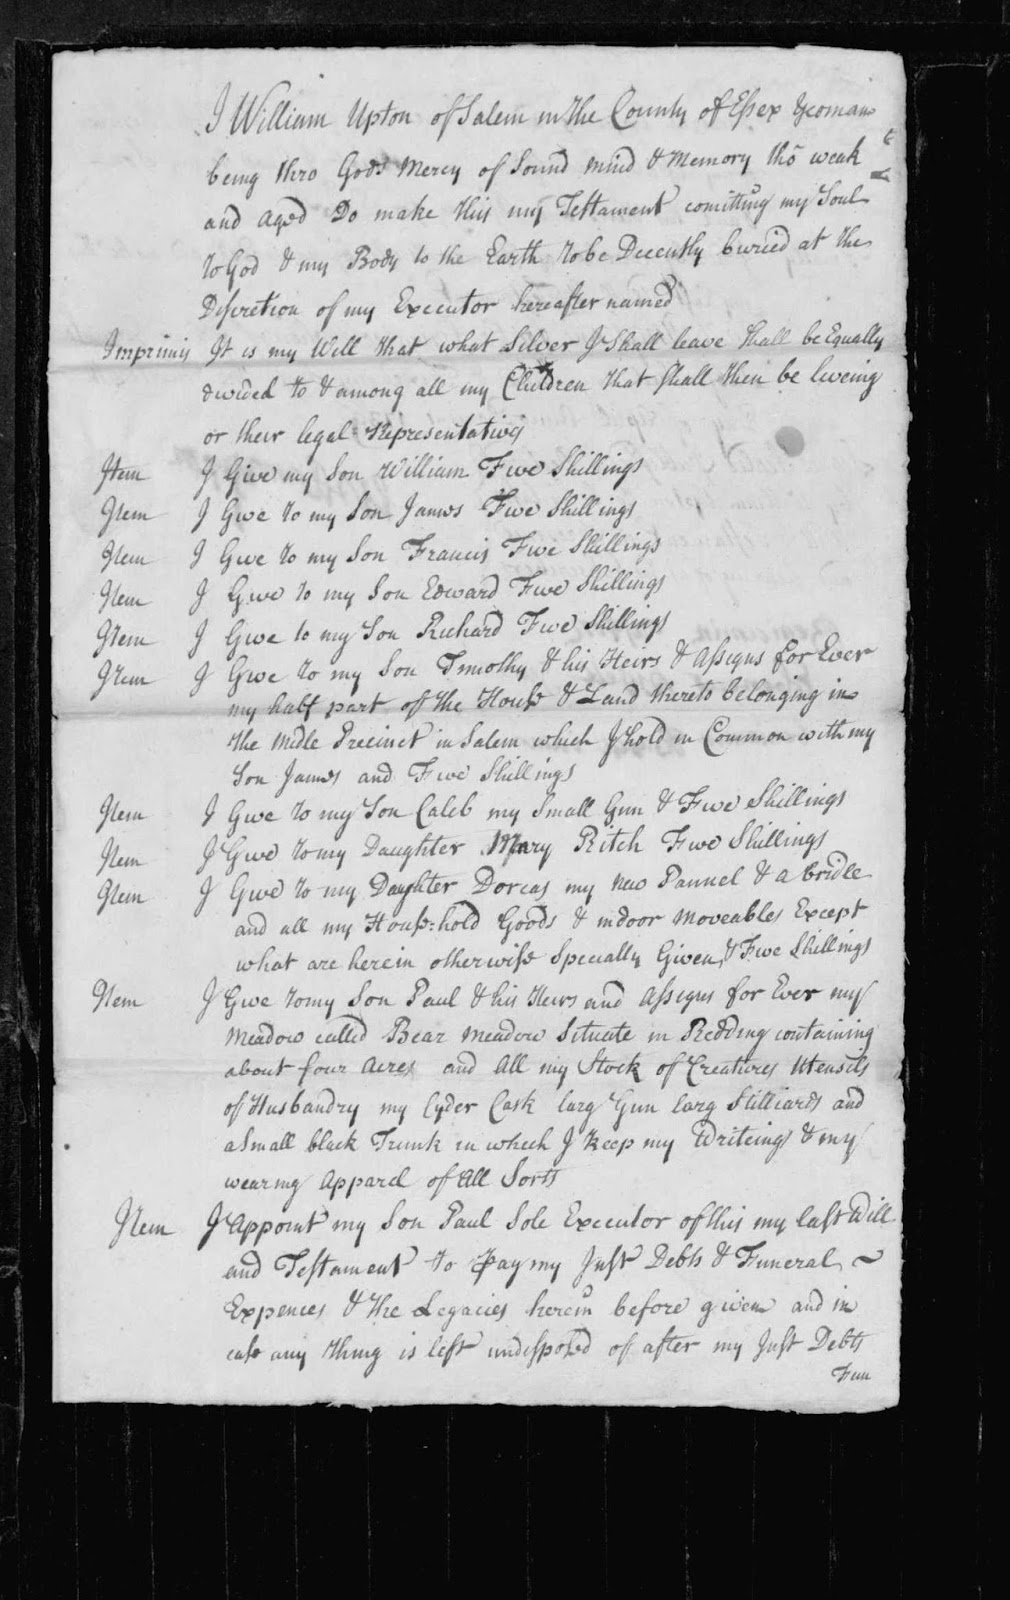 I William Upton of Salem in the County of Eſsex Yeoman
being thro Gods Mercy of Sound mind & Memory tho weak
and aged Do make this my Teſtament comitting my Soul
to God & my Body to the Earth to be Decently buried at the
Diſcretion of my Executor hereafter named
Imprimis It is my Will that what Silver I Shall leave Shall be Equally
devided to & among all my Children that ſhall then be liveing
or their legal Representatives
Item I Give my Son William Five Shillings
Item I Give to my Son James Five Shillings
Item I Give to my Son Francis Five Shillings
Item I Give to my Son Edward Five Shillings
Item I Give to my Son Richard Five Shillings
Item I Give to my Son Timothy & his Heirs & Aſsigns for Ever
my half part of the Houſe & Land thereto belonging in
the Midle Precinct in Salem which I hold in Common with my
Son James and Five Shillings
Item I Give to my Son Caleb my Small Gun & Five Shillings
Item I Give to my Daughter Mary Ritch Five Shillings
Item I Give to my Daughter Dorcas my new Pannel & a bridle
and all my Houſe=hold Goods & indoor moveables Except
what are herein otherwiſe Specially Given & Five Shillings
Item I Give to my Son Paul & his Heirs and Aſsigns for Ever my
Meadow called Bear Meadow Situate in Redding containing
about four Acres and all my Stock of Creatures Utensils
of Husbandry my Cyder Cask larg Gun larg Stilliards and
a Small black Trunk in which I keep my Writeings & my
wearing Apparel of all Sorts
Item I Appoint my Son Paul Sole Executor of this my laſt Will
and Teſtament to Pay my Juſt Debts & Funeral
Expences & the Legacies herein before given and in
caſe any thing is left undiſpoſed of after my Juſt Debts
Fun